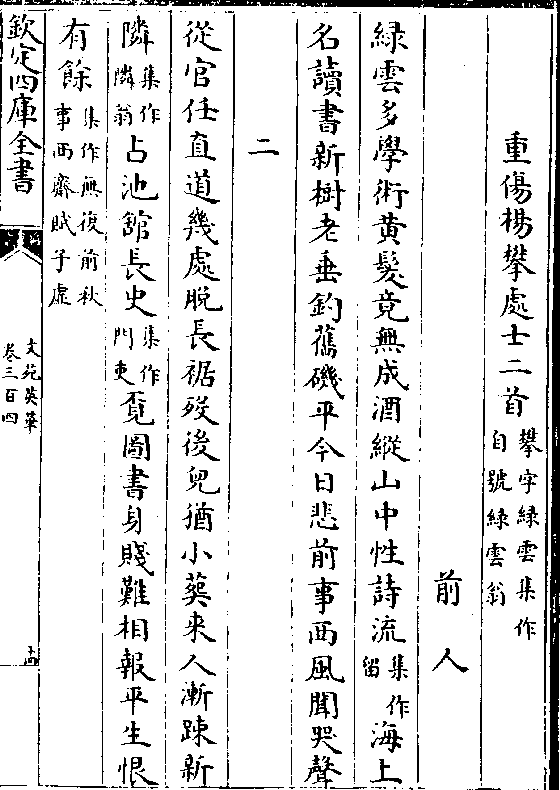 重傷楊攀處士二首攀字綠雲集作自號綠雲翁
前人
綠雲多學術黄髮竟無成酒縱山中性詩流集作留海上
名讀書新樹老垂釣舊磯平今日悲前事西風聞哭聲
二
從官任直道幾處脫長裾歿後兒猶小葬来人漸踈新
隣集作隣翁占池舘長史集作門吏覔圖書身賤難相報平生恨
有餘集作無復前秋事西齋賦子虛
欽定四庫全書
文苑英華
卷三百四
十四